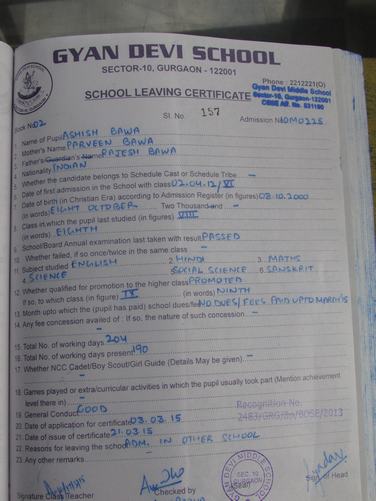 GYAN DEVI SCHOOL
SECTOR-10, GURGAON - 122001
Phone : 2212221(O)
Gyan Devi Middle School
Sector-10, Gurgaon-122001
CBSE Aff. No. 531190
SCHOOL LEAVING CERTIFICATE
Book No 02
Sl. No. 157
Admission No
1. Name of Pupil ASHISH BAWA
Mother's Name PARVEEN BAWA
Father's/Guardian's Name RAJESH BAWA
4. Nationality INDIAN
5. Whether the candidate belongs to Schedule Cast or Schedule Tribe -
6. Date of first admission in the School with class 02.04.12/VI
7. Date of birth (in Christian Era) according to Admission Register (in figures) 08.10.2000
(in words) EIGHT OCTOBER Two Thousand and -
8. Class in which the pupil last studied (in figures) VIII
(in words) EIGHTH
9. School/Board Annual examination last taken with result PASSED
10. Whether failed, if so once/twice in the same class -
11. Subject studied 1. ENGLISH 2. HINDI 3. MATHS
4. SCIENCE 5. SOCIAL SCIENCE 6. SANSKRIT
12. Whether qualified for promotion to the higher class PROMOTED
If so, to which class (in figure) IX (in words) NINTH
13. Month upto which the (pupil has paid) school dues/fee NO DUES/FEES PAID UPTO MARCH'15
14. Any fee concession availed of : If so, the nature of such concession -
15. Total No. of working days 204
16. Total No. of working days present 190
17. Whether NCC Cadet/Boy Scout/Girl Guide (Details May be given). -
18. Games played or extra/curricular activities in which the pupil usually took part (Mention achievement
level there in) -
19. General Conduct GOOD
20. Date of application for certificate 03.03.15
21. Date of issue of certificate 21.03.15
22. Reasons for leaving the school ADM. IN OTHER SCHOOL
23. Any other remarks -
Recognition No.
Signature Class Teacher
Checked by
of Head